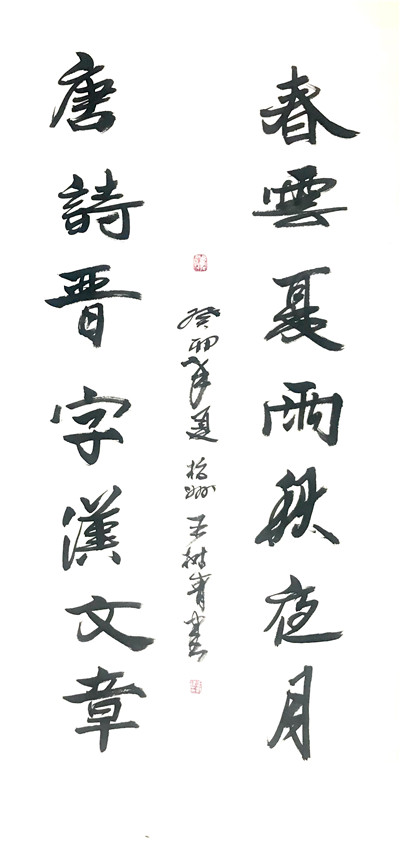 春雲夏雨秋夜月
唐詩晋字漢文章
癸卯年夏杭州王樹青書